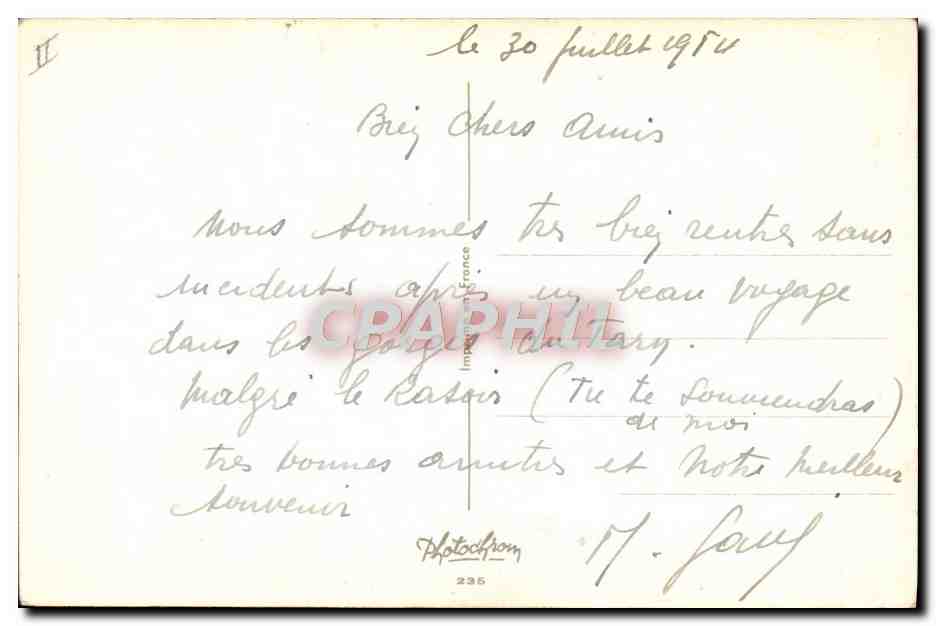 II
le 30 Juillet 1954
Bien Chers Amis
Nous sommes tres bien rentres sans
incidents après un beau voyage
dans les gorges du Tarn.
Malgré le Rasoir (Tu te souviendras)
de moi
tres bonnes amities et Notre Meilleur
souvenir
M.
Imprimé en France
CPAPHIL
Photochrom
235